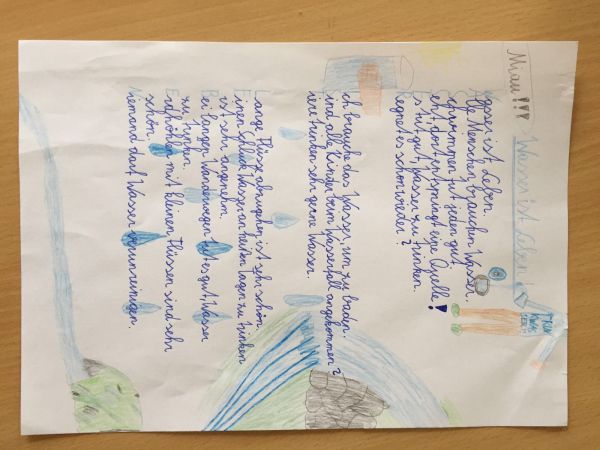 Miau!!!
Wasser ist Leben!
Wasser ist Leben.
Alle Menschen brauchen Wasser.
Schwimmen tut jedem gut.
Seht, dort entspringt eine Quelle!
Es tut gut, Wasser zu trinken.
Regnet es schon wieder?
Ich brauche das Wasser, um zu baden.
Sind alle Kinder beim Wasserfall angekommen?
Tiere trinken sehr gerne Wasser.
Lange Flüsse abzugehen, ist sehr schön.
Einen Schluck Wasser an heißen Tagen zu trinken
ist sehr angenehm.
Bei langen Wanderwegen tut es gut, Wasser
zu trinken.
Erdhöhlen mit kleinen Flüssen sind sehr
schön.
Niemand darf Wasser verunreinigen.